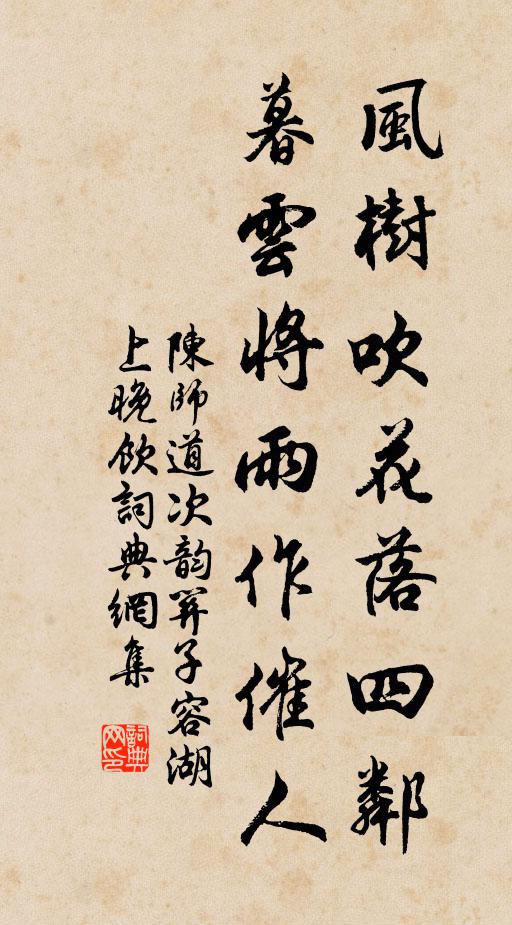 風樹吹花落四鄰
暮雲將雨作催人
陳師道次韵羿子容湖
上晚飲詞典網集
詞典网印